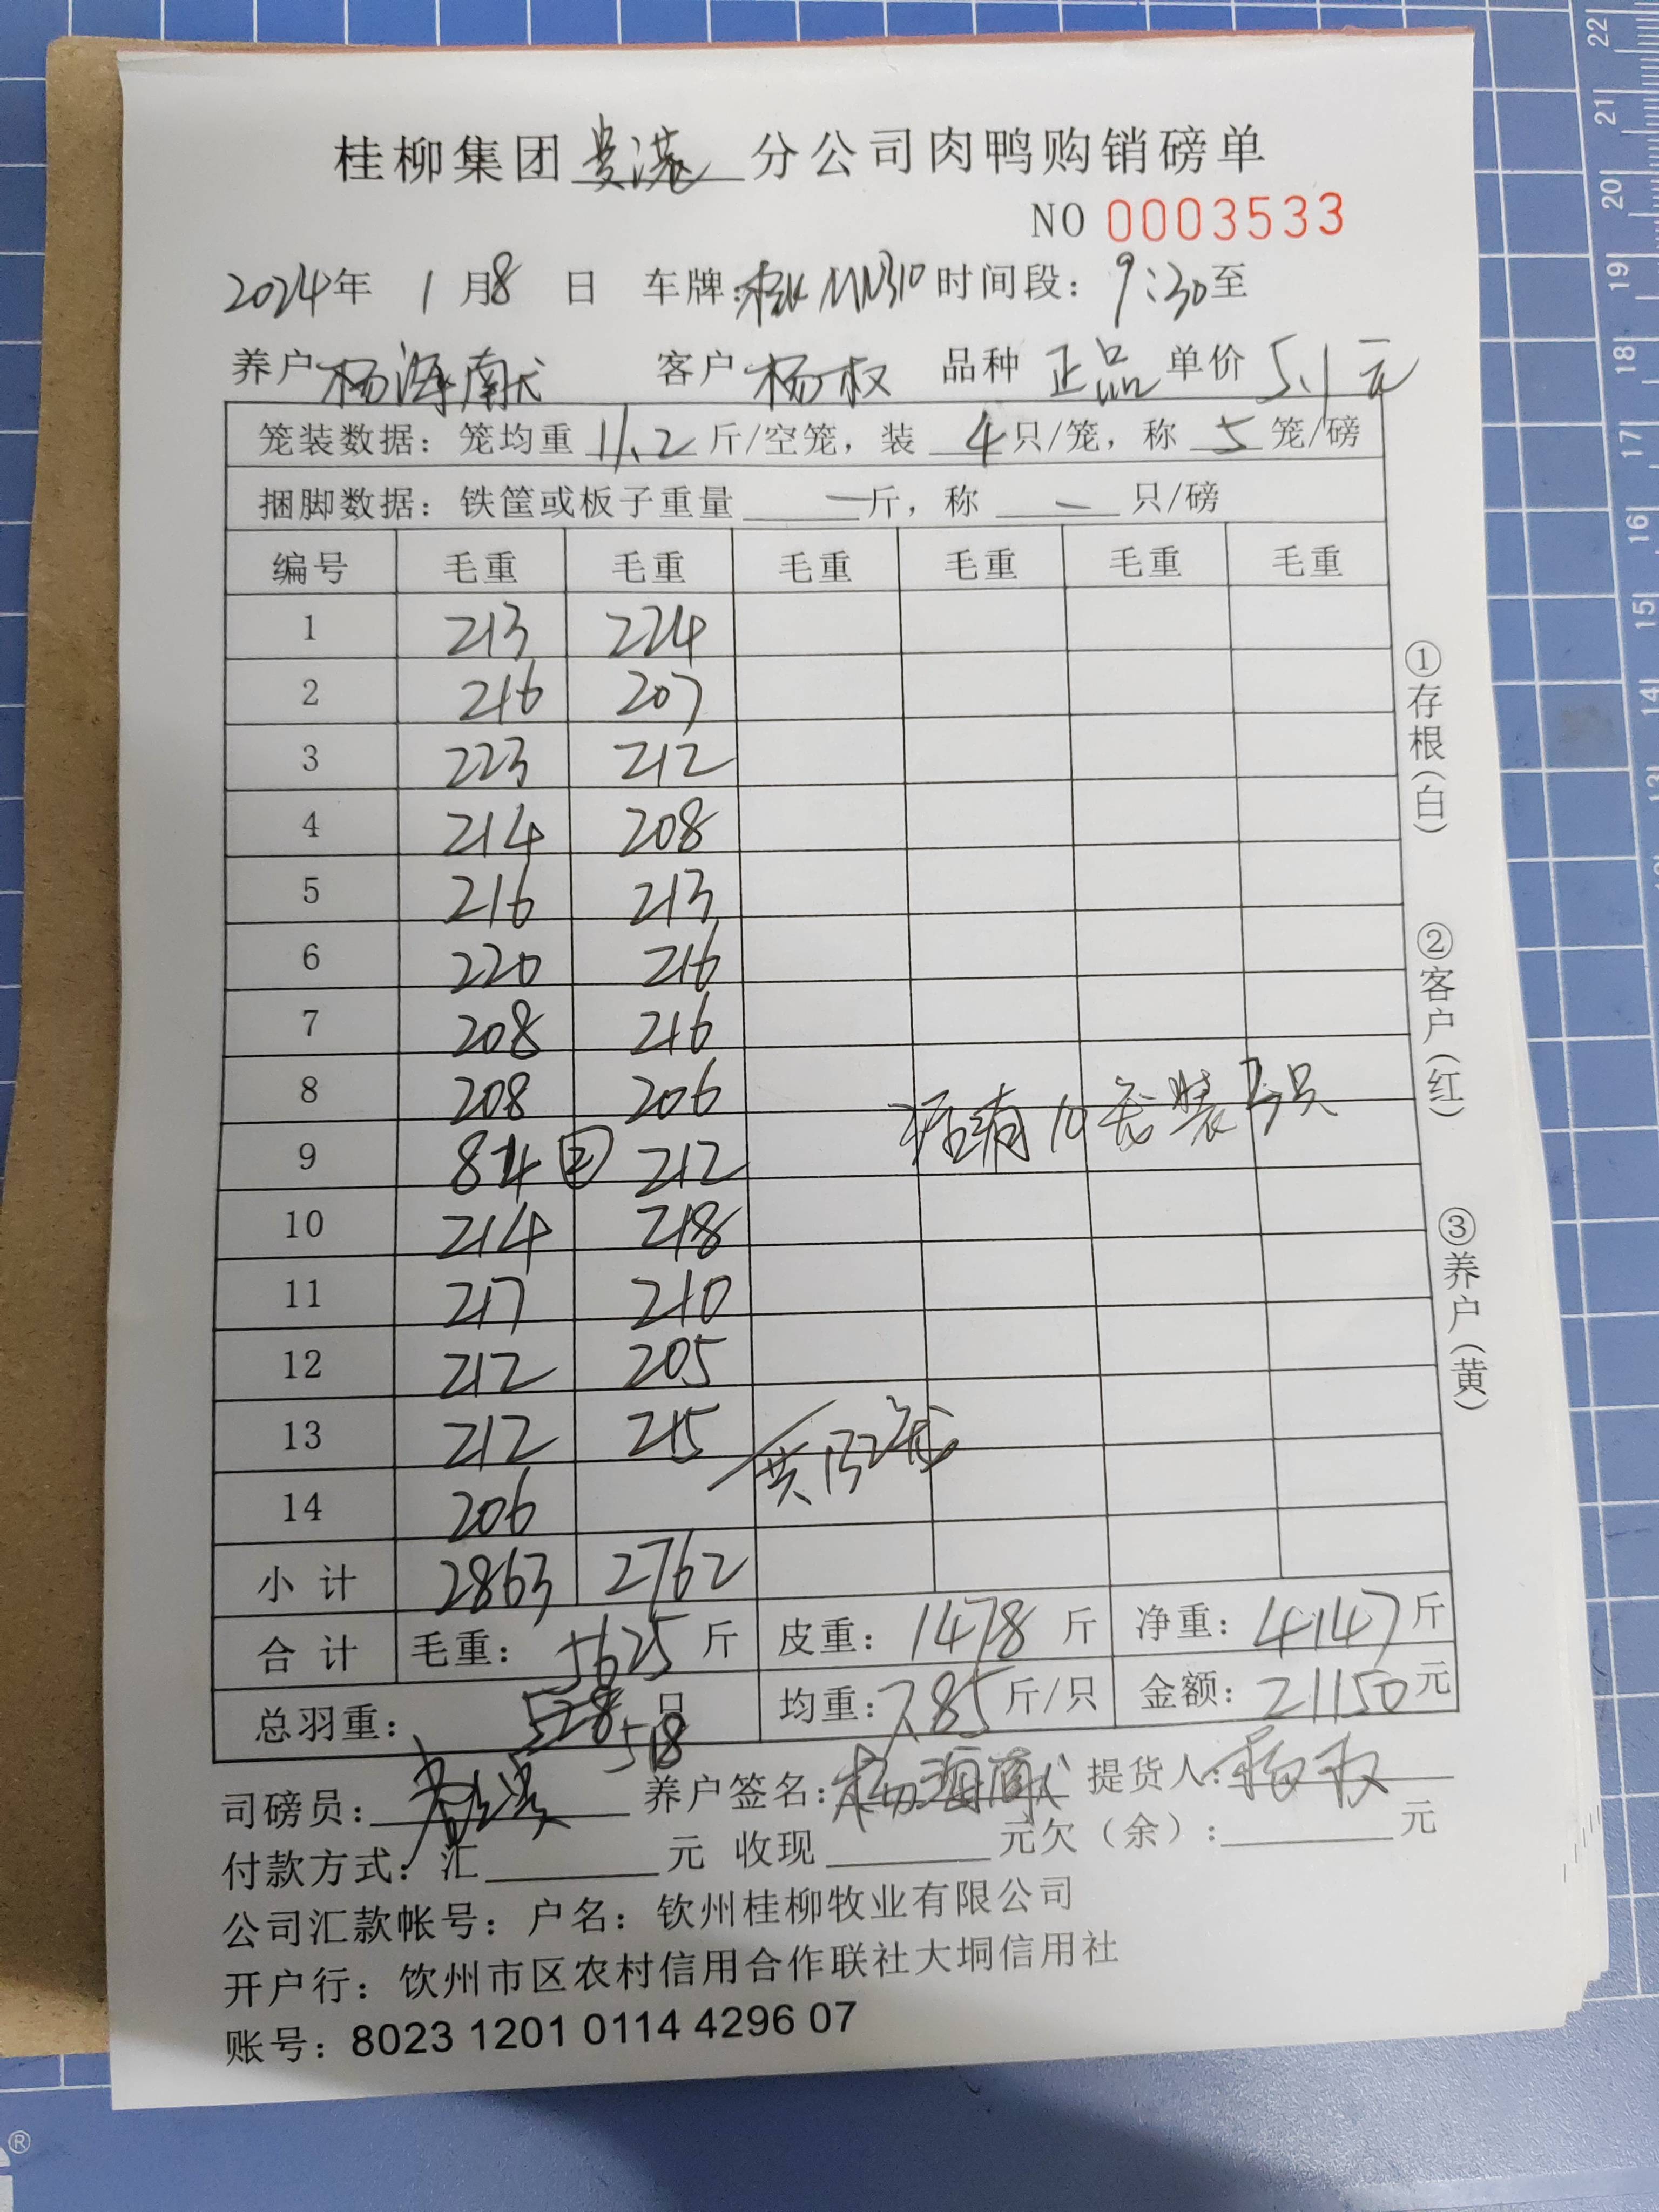 桂柳集团贵港分公司肉鸭购销磅单
NO 0003533
2024年 1月8日 车牌:桂K MN310 时间段: 9:30至
养户 杨海南 客户 杨权 品种 正品 单价 5.1元
笼装数据: 笼均重 11.2 斤/空笼, 装 4 只/笼, 称 5 笼/磅
捆脚数据: 铁筐或板子重量 — 斤, 称 — 只/磅
编号 毛重 毛重 毛重 毛重 毛重 毛重
1 213 224
2 216 207
3 223 212
4 214 208
5 216 213
6 220 216
7 208 216
8 208 206
9 84 ② 212
10 214 218
11 217 210
12 212 205
13 212 215
14 206
还有10笼装3只
共132笼
小计 2863 2762
合计 毛重: 5625 斤 皮重: 1478 斤 净重: 4147 斤
总羽重: 528 518 只 均重: 7.85 斤/只 金额: 21150 元
司磅员: 养户签名: 杨海 提货人: 杨权
付款方式: 汇 元 收现 元 欠(余): 元
公司汇款帐号: 户名: 钦州桂柳牧业有限公司
开户行: 钦州市区农村信用合作联社大垌信用社
账号: 8023 1201 0114 4296 07
①存根(白)
②客户(红)
③养户(黄)
22
21
20
19
18
17
16
15
14
13
®